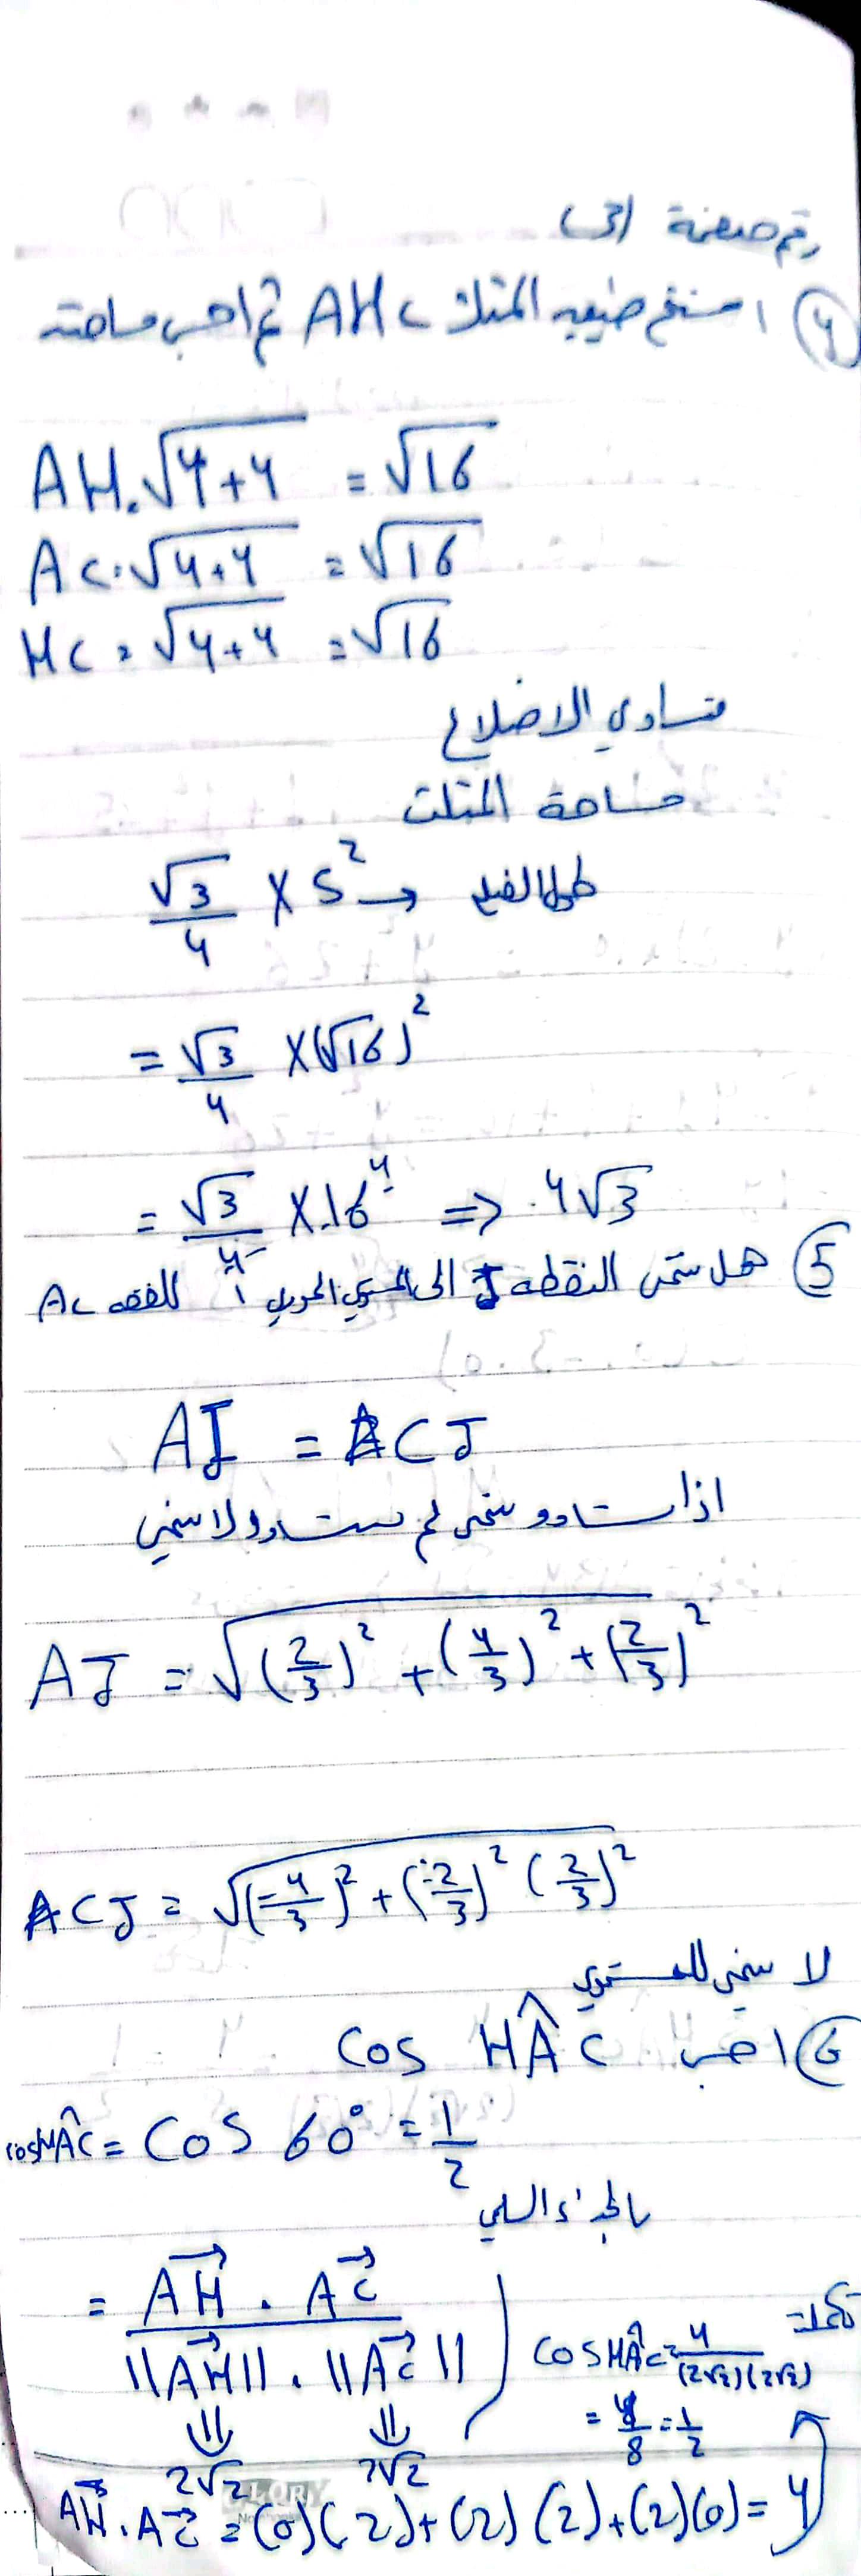 رقم صفحة (3)
④ استنتج طبيعه المثلث AHC ثم احسب مساحته
AH = √4+4 = √16
AC = √4+4 = √16
HC = √4+4 = √16
متساوي الاضلاع
مساحة المثلث
√3/4 × S² → طول الضلع
= √3/4 × (√16)²
= √3/4 × 16 ⇒ 4√3
⑤ هل تنتمي النقطه J الى المستوي المحوري للقطعه AC
AJ = CJ
اذا تساوو تنتمي لم يتساوو لا تنتمي
AJ = √(2/3)² + (4/3)² + (2/3)²
CJ = √(-4/3)² + (-2/3)² (2/3)²
لا تنتمي للمستوي
⑥ احسب cos HÂC
cosHÂC = COS 60° = 1/2
بالجداء السلمي
= AH . AC / ||AH|| . ||AC||
2√2 2√2
COSHÂC = 4/(2√2)(2√2)
= 4/8 = 1/2
AH . AC = (0)(2) + (2)(2) + (2)(0) = 4
GLORY